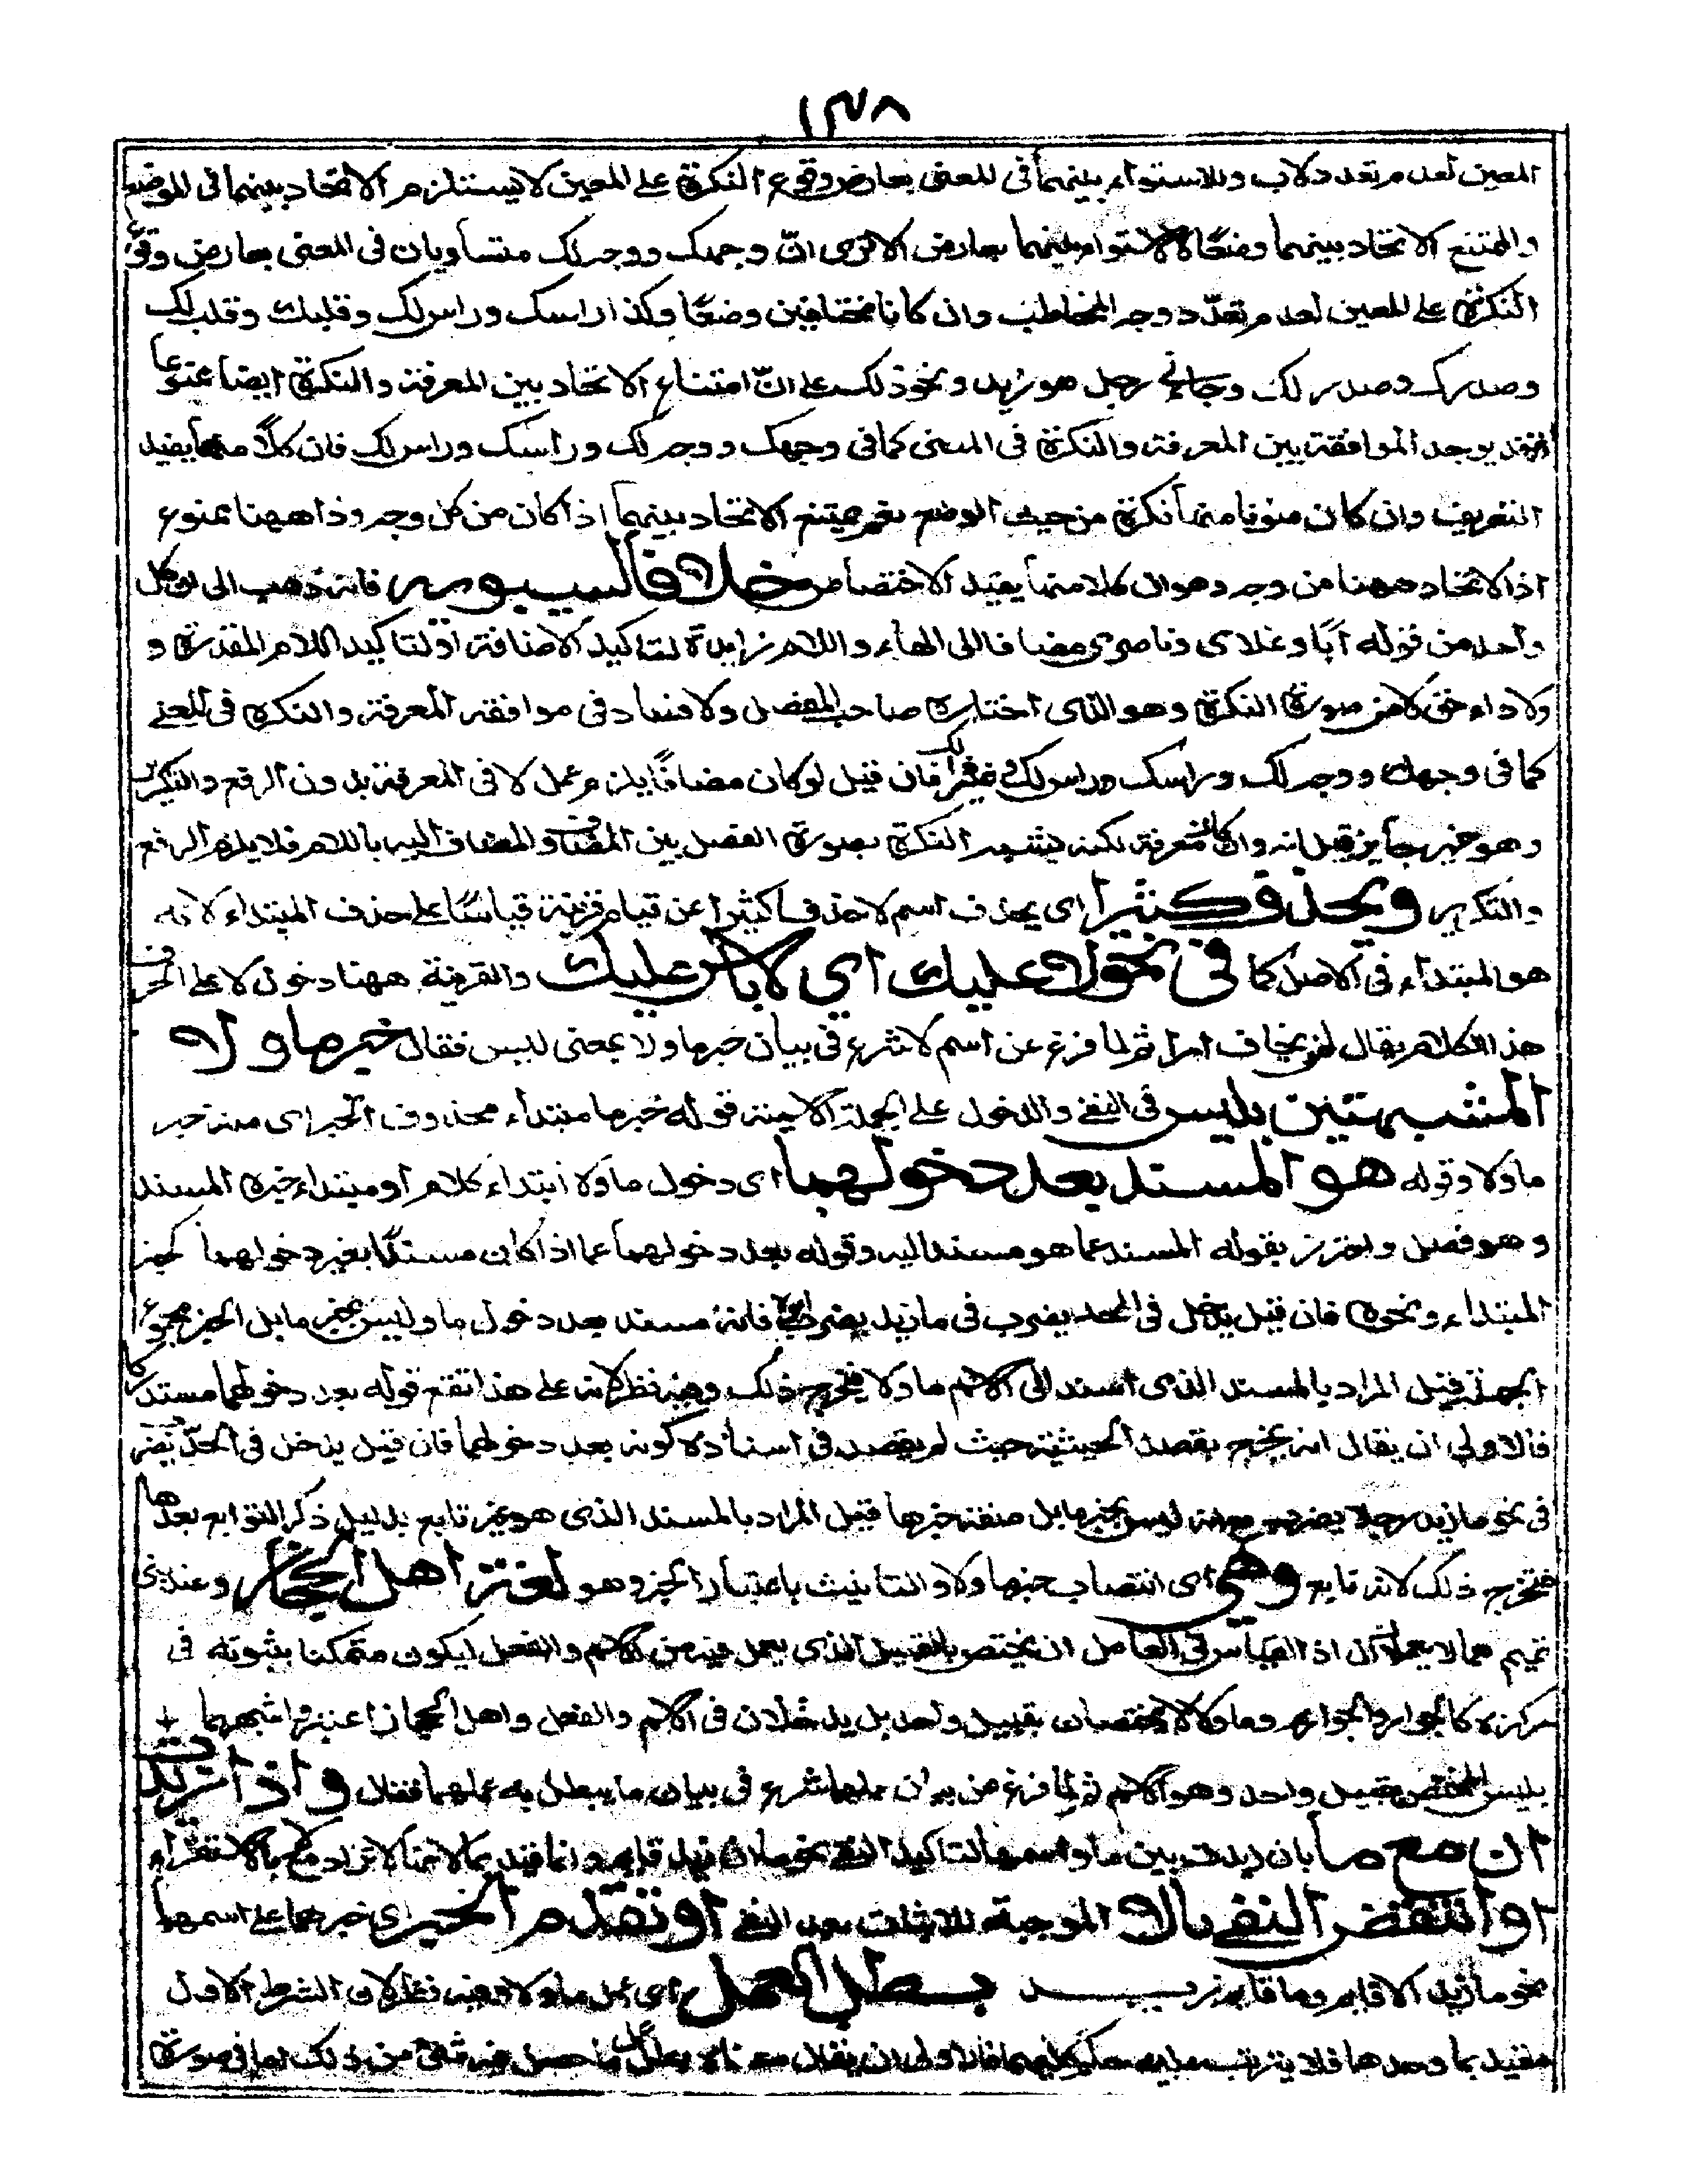 ١٣٨
المعين لعدم تعدد الاب وللاستواء بينهما في المعنى بعارض وقوع النكرة على المعين لا يستلزم الاتحاد بينهما في الوضع
والممتنع الاتحاد بينهما وضعًا لا الاستواء بينهما بعارض الا ترى انّ وجهك ووجه لك متساويان في المعنى بعارض وقوع
النكرة على المعين لعدم تعدّد وجه المخاطب وان كانا مختلفين وضعًا وكذا راسك وراس لك وقلبك وقلب لك
وصدرك وصدر لك وجاءني رجل هو زيد ونحو ذلك على انّ امتناع الاتحاد بين المعرفة والنكرة ايضا ممنوع
فقد يوجد الموافقة بين المعرفة والنكرة في المعنى كما في وجهك ووجه لك وراسك وراس لك فان كلًّا منهما يفيد
التعريف وان كان منونا منهما نكرة من حيث الوضع نعم يمتنع الاتحاد بينهما اذا كان من كل وجه وذا ههنا ممنوع
اذ الاتحاد ههنا من وجه وهو ان كلا منهما يفيد الاختصاص خلافا لسيبويه فانه ذهب الى ان كل
واحد من قوله ابًا وغلامي وناصري مضاف الى الهاء واللام زايدة لتاكيد الاضافة او لتاكيد اللام المقدرة و
لاداء حق لا من صورة النكرة وهو الذي اختاره صاحب المفصل ولا فساد في موافقة المعرفة والنكرة في المعنى
كما في وجهك ووجه لك وراسك وراس لك فان قيل لو كان مضافًا يلزم عمل لا في المعرفة بدون الرفع والتكرير
وهو غير جايز قيل انه وان كان معرفة لكنه يشبه النكرة بصورة الفصل بين المضاف والمضاف اليه باللام فلا يلزم الرفع
والتكرير ويحذف كثيرا اى يحذف اسم لا حذفا كثيرا عن قيام قرينة قياسًا على حذف المبتداء لانه
هو المبتداء في الاصل كما في نحو لا عليك اى لا باس عليك والقرينة ههنا دخول لا على الحرف
هذا الكلام يقال لمن يخاف امرا ثم لما فرغ عن اسم لا شرع في بيان خبر ما ولا بمعنى ليس فقال خبر ما ولا
المشبهتين بليس في النفي والدخول على الجملة الاسمية قوله خبر ما مبتداء محذوف الخبر اى منه خبر
ما ولا وقوله هو المسند بعد دخولهما اى دخول ما ولا ابتداء كلام او مبتداء خبره المسند
وهو فصل واحترز بقوله المسند عما هو مسند اليه وقوله بعد دخولهما عما اذا كان مسندًا بغير دخولهما كخبر
المبتداء ونحوه فان قيل يدخل في الحد يضرب في ما زيد يضرب ابوه فانه مسند بعد دخول ما وليس بخبر ما بل الخبر مجموع
الجملة قيل المراد بالمسند الذي اسند الى الاسم ما ولا فيخرج ذلك وفيه نظر لانه على هذا تقع قوله بعد دخولهما مستدركا
فالاولى ان يقال انه يخرج بقصد الحيثية حيث لم يقصد في اسناده كونه بعد دخولهما فان قيل يدخل في الحدّ يضرب
في نحو ما زيد رجلا يضرب مع انه ليس بخبر ما بل صفة خبرها قيل المراد بالمسند الذي هو غير تابع بدليل ذكر التوابع بعدها
فيخرج ذلك لانه تابع وهي اى انتصاب خبر ما ولا والتانيث باعتبار الخبر وهو لغة اهل الحجاز وعند بني
تميم هما لا يعملان اذ القياس في العامل ان يختص بالقبيل الذي يعمل فيه من الاسم والفعل ليكون متمكنا بثبوته في
مركزه كالجوار والجوازم وما ولا لا يختصان بقبيل واحد بل يدخلان في الاسم والفعل واهل الحجاز اعتبروا شبههما
بليس المختص بقبيل واحد وهو الاسم ثم لما فرغ من بيان عملهما شرع في بيان ما يبطل به عملهما فقال واذا زيدت
ان مع ما بان زيدت بين ما واسمها لتاكيد النفي نحو ما ان زيد قايم وانما قيد بما لانها لا تزاد مع لا بالاستقراء
او انتقض النفي بالا الموجبة للاثبات بعد النفي او تقدم الخبر اى خبرهما على اسمهما
نحو ما زيد الا قايم وما قايم زيد بطل العمل اى عمل ما ولا وفيه نظر لان الشرط الاول
مقيد بما وحدها فلا يترتب عليه حكم كليهما فالاولى ان يقال معناه بطل عمل ما حصل فيه شئ من ذلك اما في صورة